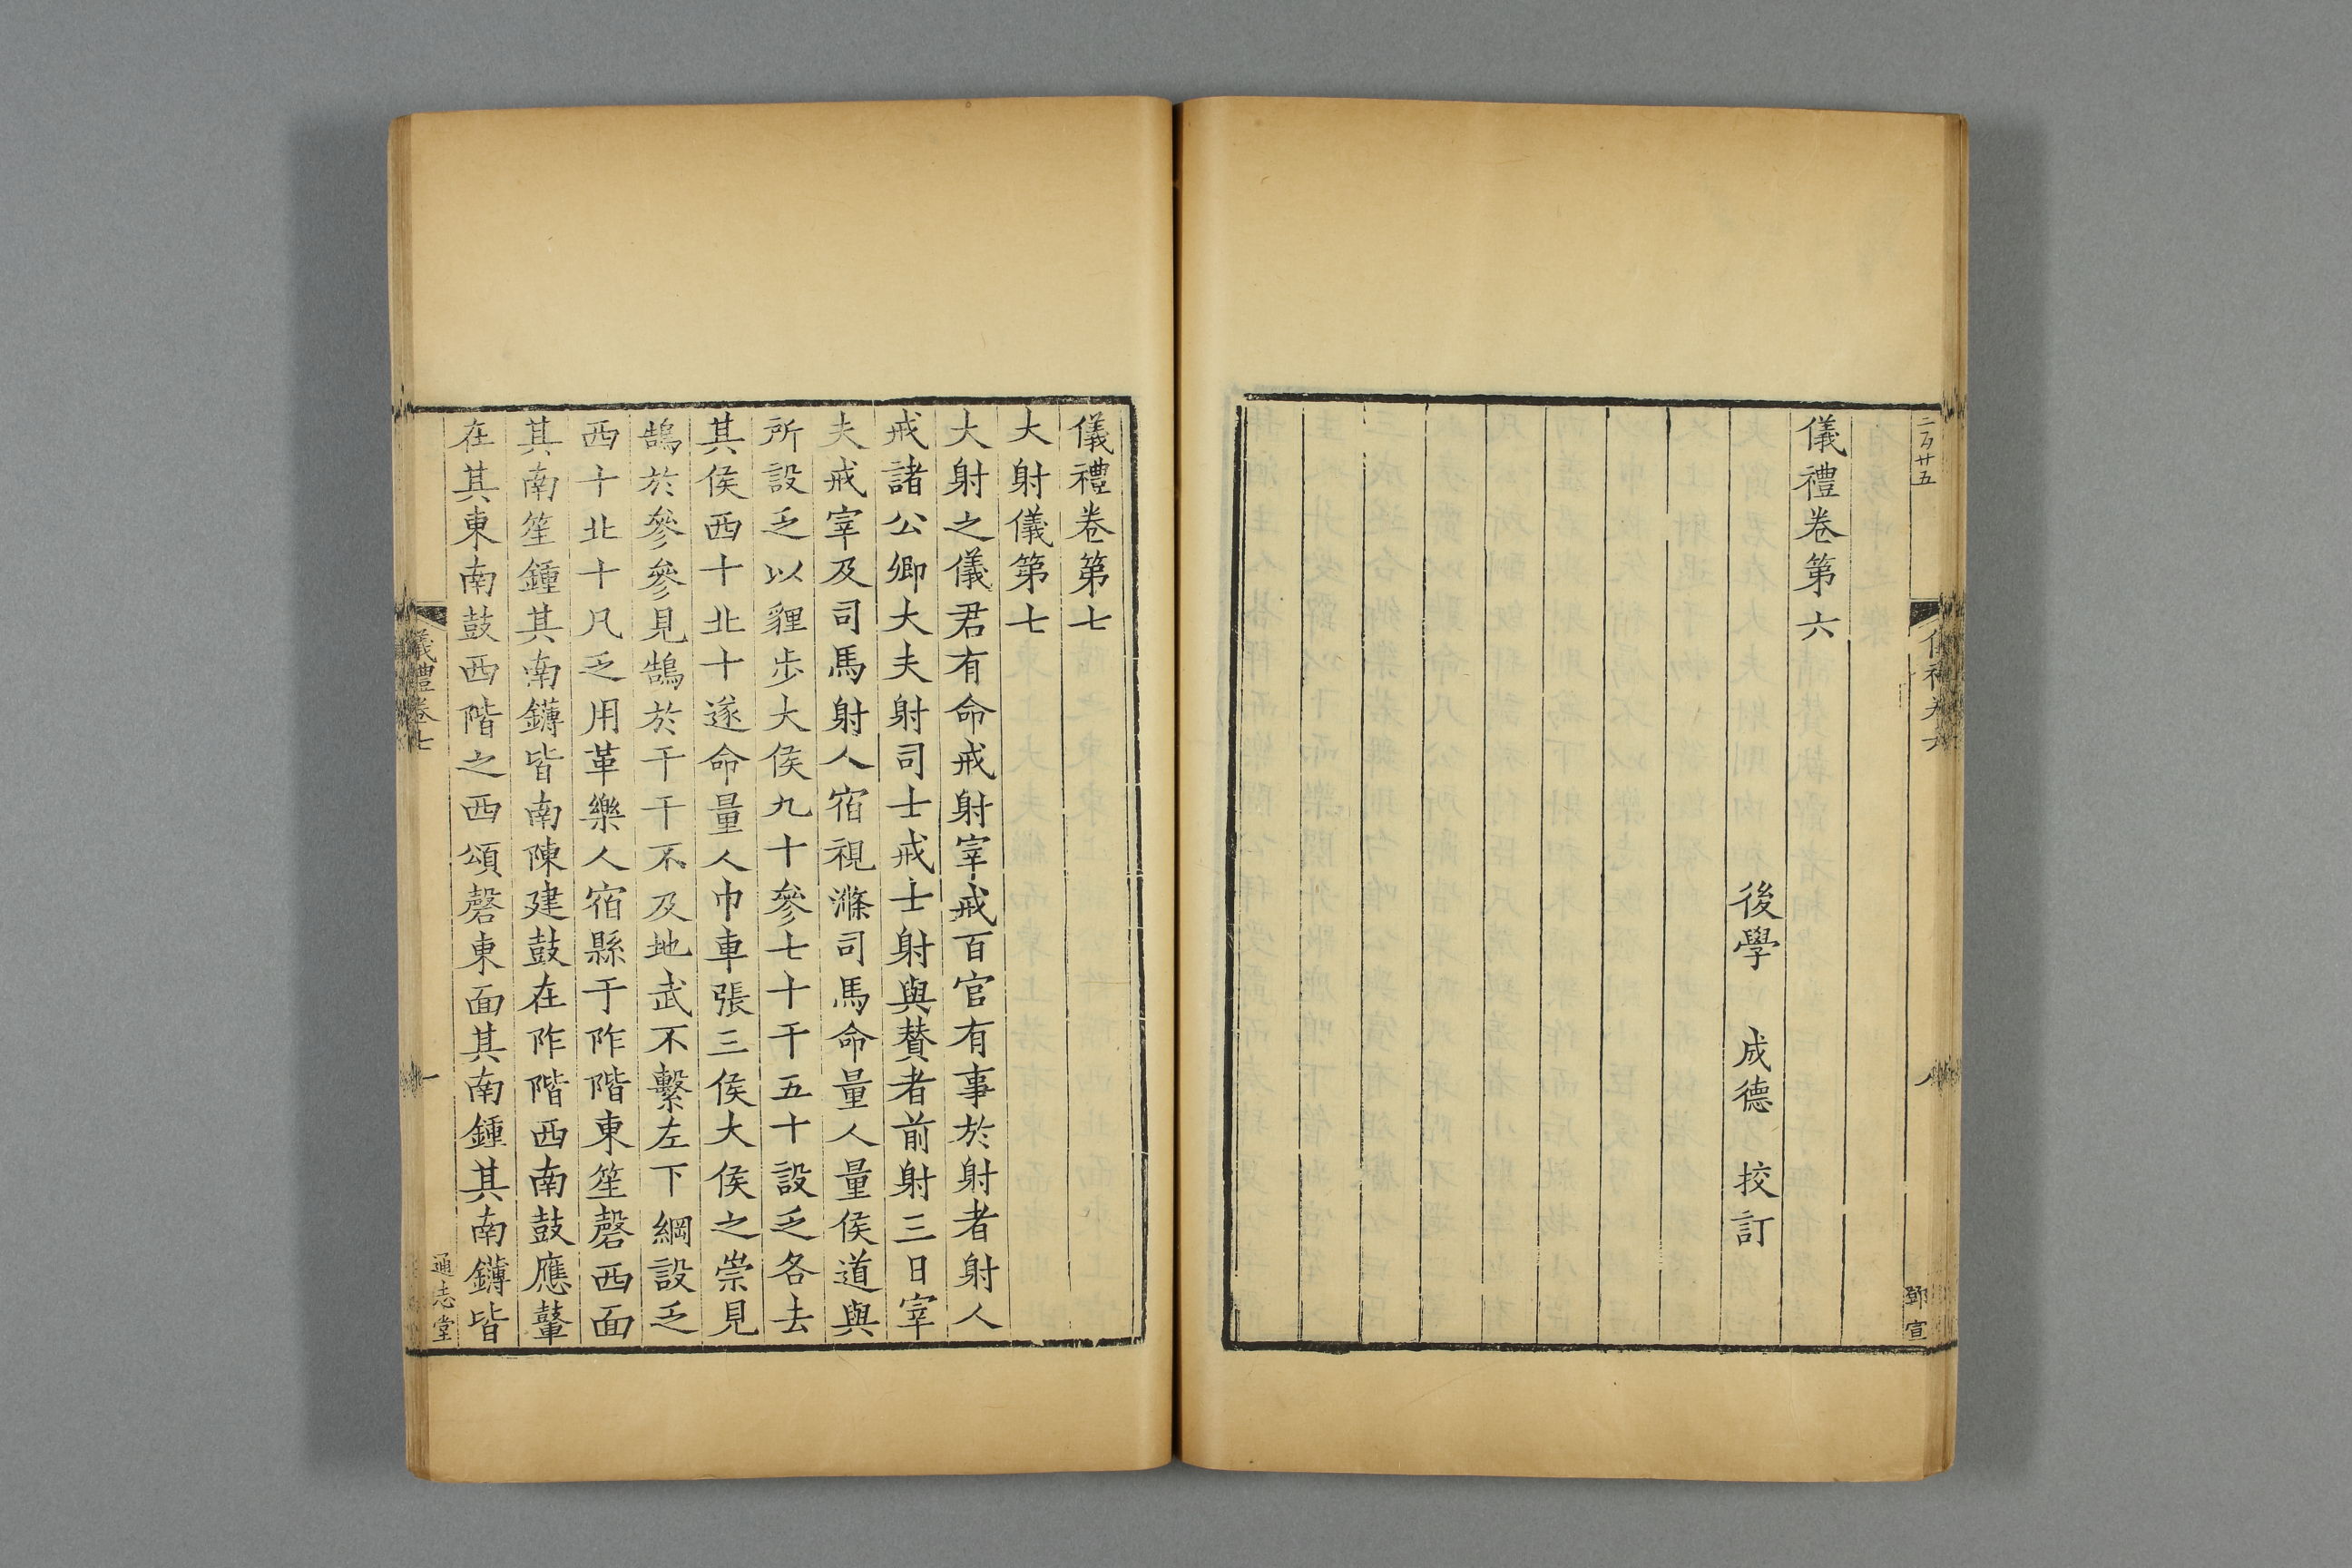 二百廿五
儀禮卷六
八
鄧宣
儀禮卷第六
後學 成德 校訂
儀禮卷第七
大射儀第七
大射之儀君有命戒射宰戒百官有事於射者射人
戒諸公卿大夫射司士戒士射與贊者前射三日宰
夫戒宰及司馬射人宿視滌司馬命量人量侯道與
所設乏以貍步大侯九十參七十干五十設乏各去
其侯西十北十遂命量人巾車張三侯大侯之崇見
鵠於參參見鵠於干干不及地武不繫左下綱設乏
西十北十凡乏用革樂人宿縣于阼階東笙磬西面
其南笙鍾其南鑮皆南陳建鼓在阼階西南鼓應鼙
在其東南鼓西階之西頌磬東面其南鍾其南鑮皆
儀禮卷七
一
通志堂